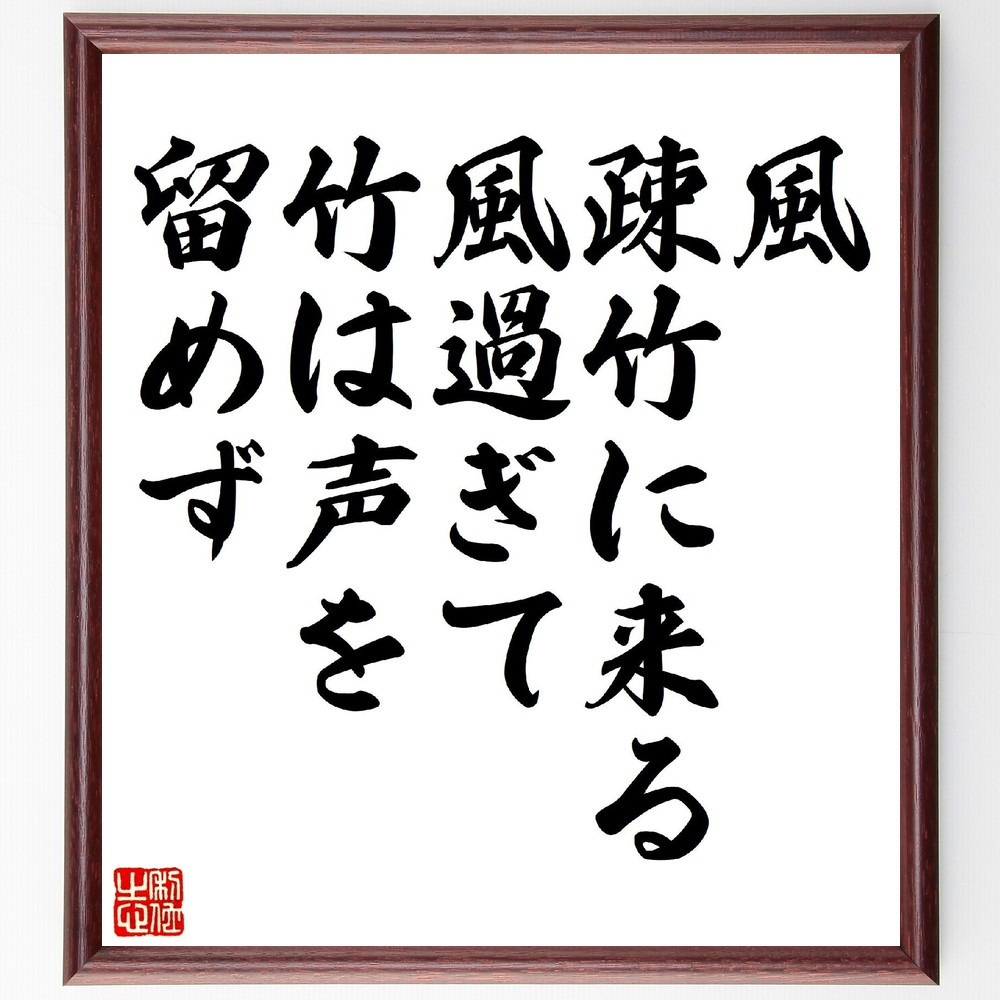 風
疎竹に来る
風過ぎて
竹は声を
留めず